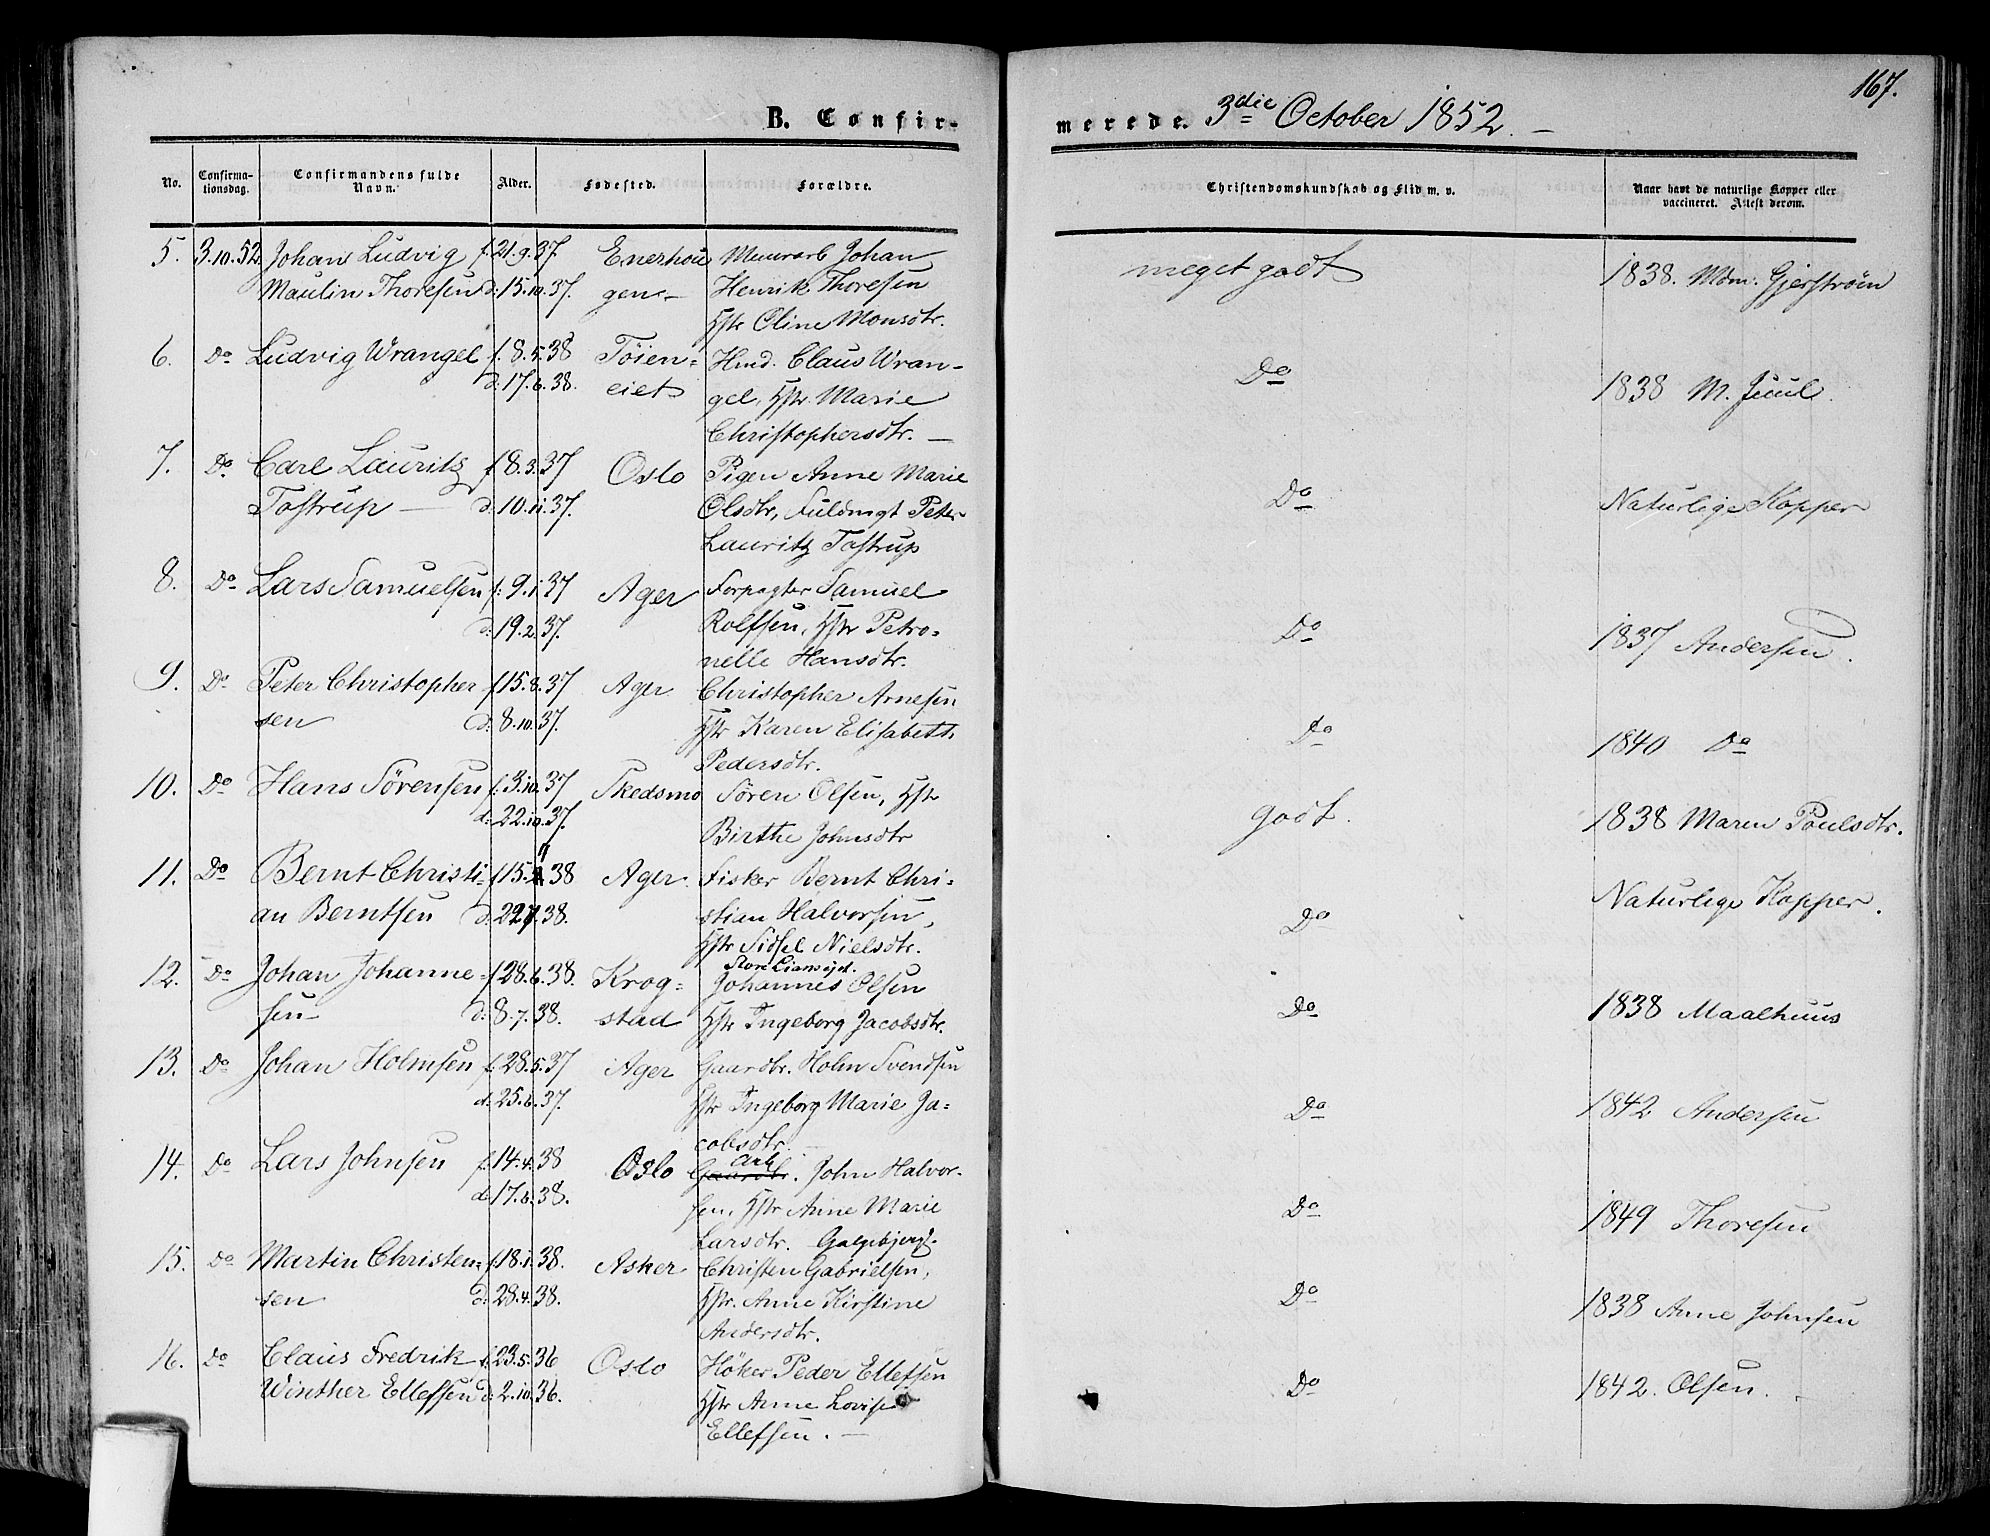 167.
B. Confirmerede. 3die October 1852. —
No. Confirmationsdag. Confirmandens fulde Navn. Alder. Fødested. Forældre. Christendomskundskab og Flid m. v. Naar havt de naturlige Kopper eller vaccineret. Attest derom.
5. 3.10.52. Johan Ludvig f. 21.9.37. Enerhou Muurarb Johan meget godt 1838. Mdm: Gjerstrøm
Maulin Thoresen d. 15.10.37. gen – Henrik Thoresen
Hstr Oline Monsdtr.
6. Do Ludvig Wrangel f. 8.5.38 Tøien= Hmd. Claus Wran- Do 1838 M. Juul.
d. 17.6.38. eiet gel, Hstr. Marie
Christophersdtr. —
7. Do Carl Lauritz f 8.3.37 Oslo Pigen Anne Marie Do Naturlige Kopper
Tostrup — d. 10.11.37. Olsdtr, Fuldmgt Peter
Lauritz Tostrup
8. Do Lars Samuelsen f. 9.1.37 Ager Forpagter Samuel Do 1837 Andersen.
d. 19.2.37. Rolfsen, Hstr Petro=
nelle Hansdtr.
9. Do Peter Christopher f 15.8.37 Ager Christopher Arnesen Do 1840 Do
sen d. 8.10.37. Hstr Karen Elisabeth
Pedersdtr.
10. Do Hans Sørensen f. 3.10.37 Skedsmo Søren Olsen, Hstr godt. 1838 Maren Poulsdtr.
d: 22.10.37. Birthe Johnsdtr
11. Do Bernt Christi= f 15. 38 Ager. Fisker Bernt Chri= Do Naturlige Kopper.
an Berntsen d. 22 38. stian Halvorsen,
Hstr Sidsel Nielsdtr.
12. Do Johan Johanne= f. 28.6.38. Krog= Store Liansejet. Johannes Olsen Do 1838 Maalhuus
sen – d: 8.7.38. stad Hstr Ingeborg Jacobsdtr.
13. Do Johan Holmsen f. 28.5.37 Ager Gaardbr. Holm Svendsen Do 1842 Andersen
d. 25.6.37. Hstr Ingeborg Marie Ja=
cobsdtr.
14. Do Lars Johnsen f. 14.4.38 Oslo Gaardbr. Arb. John Halvor- Do 1849 Thoresen
d. 17.6.38. sen, Hstr Anne Marie
Larsdtr. Galgebjerg.
15. Do Martin Christen= f. 18.1.38. Asker Christen Gabrielsen, Do 1838 Anne Johnsen
sen d. 28.4.38. Hstr. Anne Kirstine
Andersdtr.
16. Do Claus Fredrik f. 23.5.36 Oslo Höker Peder Ellefsen Do 1842. Olsen.
Winther Ellefsen d. 2.10.36. Hstr Anne Lovise
Ellefsen. —